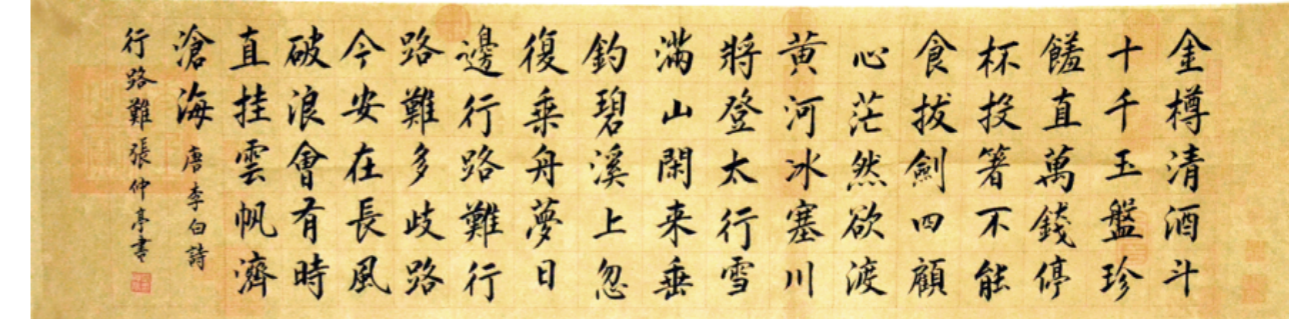 金樽清酒斗
十千玉盤珍
饈直萬錢停
杯投箸不能
食拔劍四顧
心茫然欲渡
黄河冰塞川
將登太行雪
滿山閑来垂
釣碧溪上忽
復乗舟夢日
邊行路難行
路難多歧路
今安在長風
破浪會有時
直挂雲帆濟
滄海 唐李白詩
行路難張仲亭書